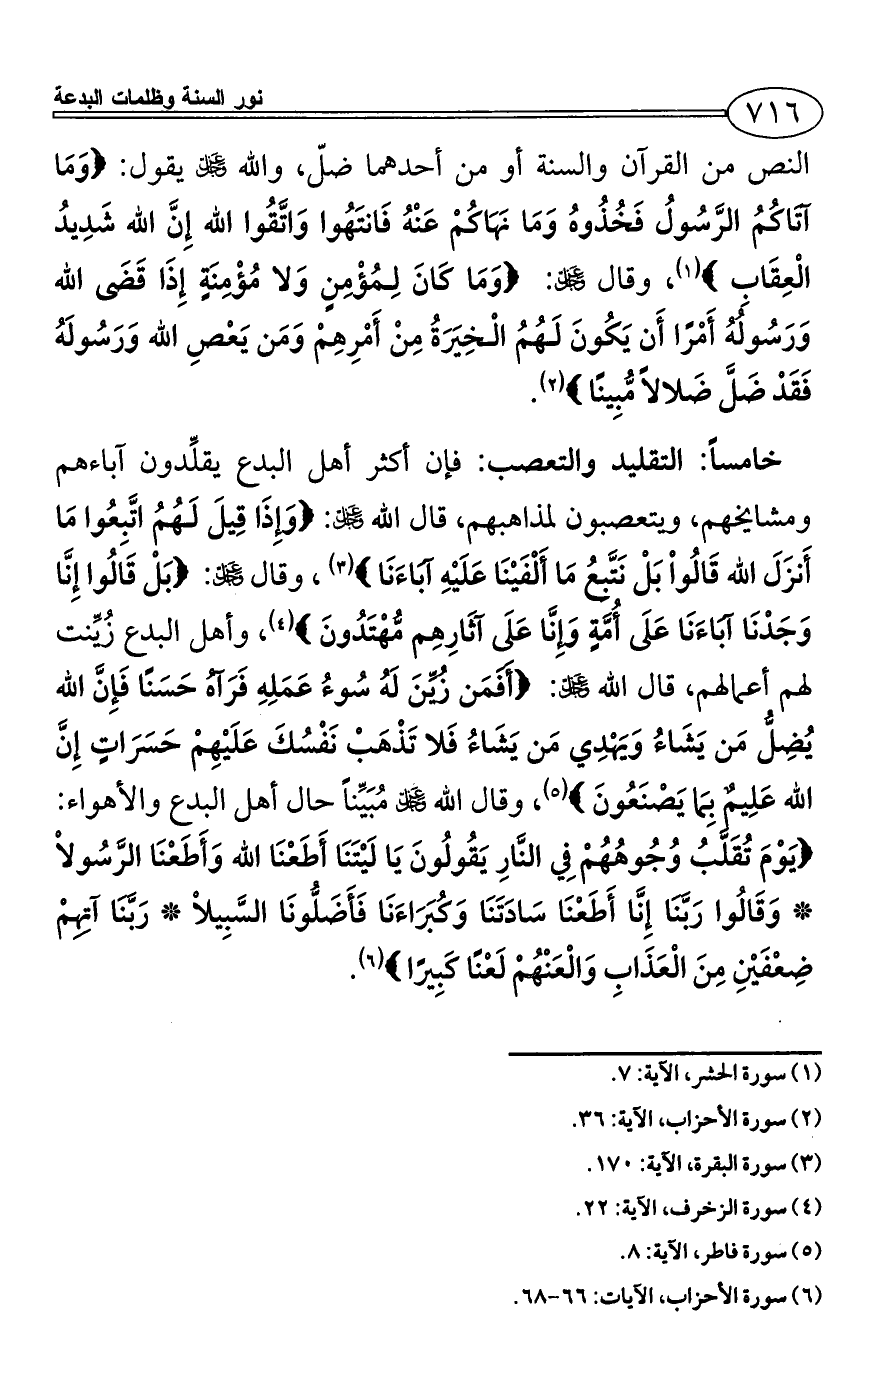 نور السنة وظلمات البدعة
٧١٦
النص من القرآن والسنة أو من أحدهما ضلّ، والله ﷻ يقول: ﴿وَمَا
آتَاكُمُ الرَّسُولُ فَخُذُوهُ وَمَا نَهَاكُمْ عَنْهُ فَانتَهُوا وَاتَّقُوا الله إِنَّ الله شَدِيدُ
الْعِقَابِ ﴾(١)، وقال ﷻ: ﴿وَمَا كَانَ لِـمُؤْمِنٍ وَلا مُؤْمِنَةٍ إِذَا قَضَى الله
وَرَسُولُهُ أَمْرًا أَن يَكُونَ لَـهُمُ الْـخِيَرَةُ مِنْ أَمْرِهِمْ وَمَن يَعْصِ الله وَرَسُولَهُ
فَقَدْ ضَلَّ ضَلالاً مُّبِينًا ﴾(٢).
خامساً: التقليد والتعصب: فإن أكثر أهل البدع يقلِّدون آباءهم
ومشايخهم، ويتعصبون لمذاهبهم، قال الله ﷻ: ﴿وَإِذَا قِيلَ لَـهُمُ اتَّبِعُوا مَا
أَنزَلَ الله قَالُواْ بَلْ نَتَّبِعُ مَا أَلْفَيْنَا عَلَيْهِ آبَاءَنَا ﴾(٣) ، وقال ﷻ: ﴿بَلْ قَالُوا إِنَّا
وَجَدْنَا آبَاءَنَا عَلَى أُمَّةٍ وَإِنَّا عَلَى آثَارِهِم مُّهْتَدُونَ ﴾(٤)، وأهل البدع زُيِّنت
لهم أعمالهم، قال الله ﷻ: ﴿أَفَمَن زُيِّنَ لَهُ سُوءُ عَمَلِهِ فَرَآهُ حَسَنًا فَإِنَّ الله
يُضِلُّ مَن يَشَاءُ وَيَهْدِي مَن يَشَاءُ فَلا تَذْهَبْ نَفْسُكَ عَلَيْهِمْ حَسَرَاتٍ إِنَّ
الله عَلِيمٌ بِمَا يَصْنَعُونَ ﴾(٥)، وقال الله ﷻ مُبَيِّناً حال أهل البدع والأهواء:
﴿يَوْمَ تُقَلَّبُ وُجُوهُهُمْ فِي النَّارِ يَقُولُونَ يَا لَيْتَنَا أَطَعْنَا الله وَأَطَعْنَا الرَّسُولاْ
* وَقَالُوا رَبَّنَا إِنَّا أَطَعْنَا سَادَتَنَا وَكُبَرَاءَنَا فَأَضَلُّونَا السَّبِيلاْ * رَبَّنَا آتِهِمْ
ضِعْفَيْنِ مِنَ الْعَذَابِ وَالْعَنْهُمْ لَعْنًا كَبِيرًا ﴾(٦).
(١) سورة الحشر، الآية: ٧.
(٢) سورة الأحزاب، الآية: ٣٦.
(٣) سورة البقرة، الآية: ١٧٠.
(٤) سورة الزخرف، الآية: ٢٢.
(٥) سورة فاطر، الآية: ٨.
(٦) سورة الأحزاب، الآيات: ٦٦-٦٨.